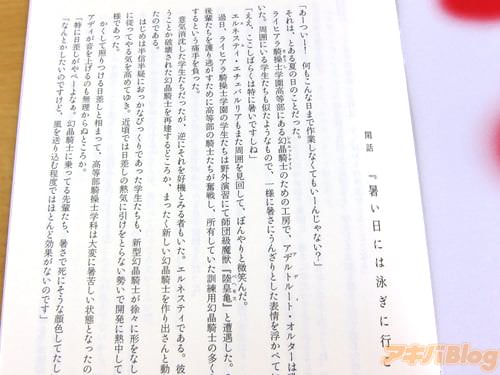 閑話 『暑い日には泳ぎに行こ
「あーつぃー！ 何もこんな日まで作業しなくてもいーんじゃない？」
それは、とある夏の日のことだった。
ライヒアラ騎操士学園高等部にある幻晶騎士のための工房で、アデルトルート・オルターは
いた。周囲にいる学生たちも似たようなもので、一様に暑さにうんざりとした表情を浮かべてい
「ええ、ここしばらくは特に暑いですしね」
エルネスティ・エチェバルリアもまた周囲を見回して、ぼんやりと微笑んだ。
過日、ライヒアラ騎操士学園の学生たちは野外演習にて師団級魔獣『陸皇亀』と遭遇した。
後輩たちを護り逃がすために高等部の騎士たちが奮戦し、所有していた訓練用幻晶騎士の多く
するという痛手を負った。
意気消沈した学生たちだったが、逆にそれを好機とみる者もいた。エルネスティである。彼
うことか破壊された幻晶騎士を再建するどころか、まったく新しい幻晶騎士を作り出さんと動
たのである。
はじめは半信半疑におっかなびっくりであった学生たちも、新型幻晶騎士が徐々に形をなし
に従ってやる気を高めてゆき。近頃では日差しの熱気に引けをとらない勢いで開発に熱中して
様であった。
かくして照りつける日差しと相まって、高等部騎操士学科は大変に暑苦しい状態となったの
アディが音を上げるのも無理からぬところか。
「特に日差しがやべーよなぁ。幻晶騎士に乗ってる先輩たち、暑さで死にそうな顔色してたし
「なんとかしたいのですけど、風を送り込む程度ではほとんど効果がないのです」
アキバBlog